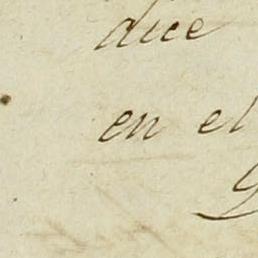 dice
en el